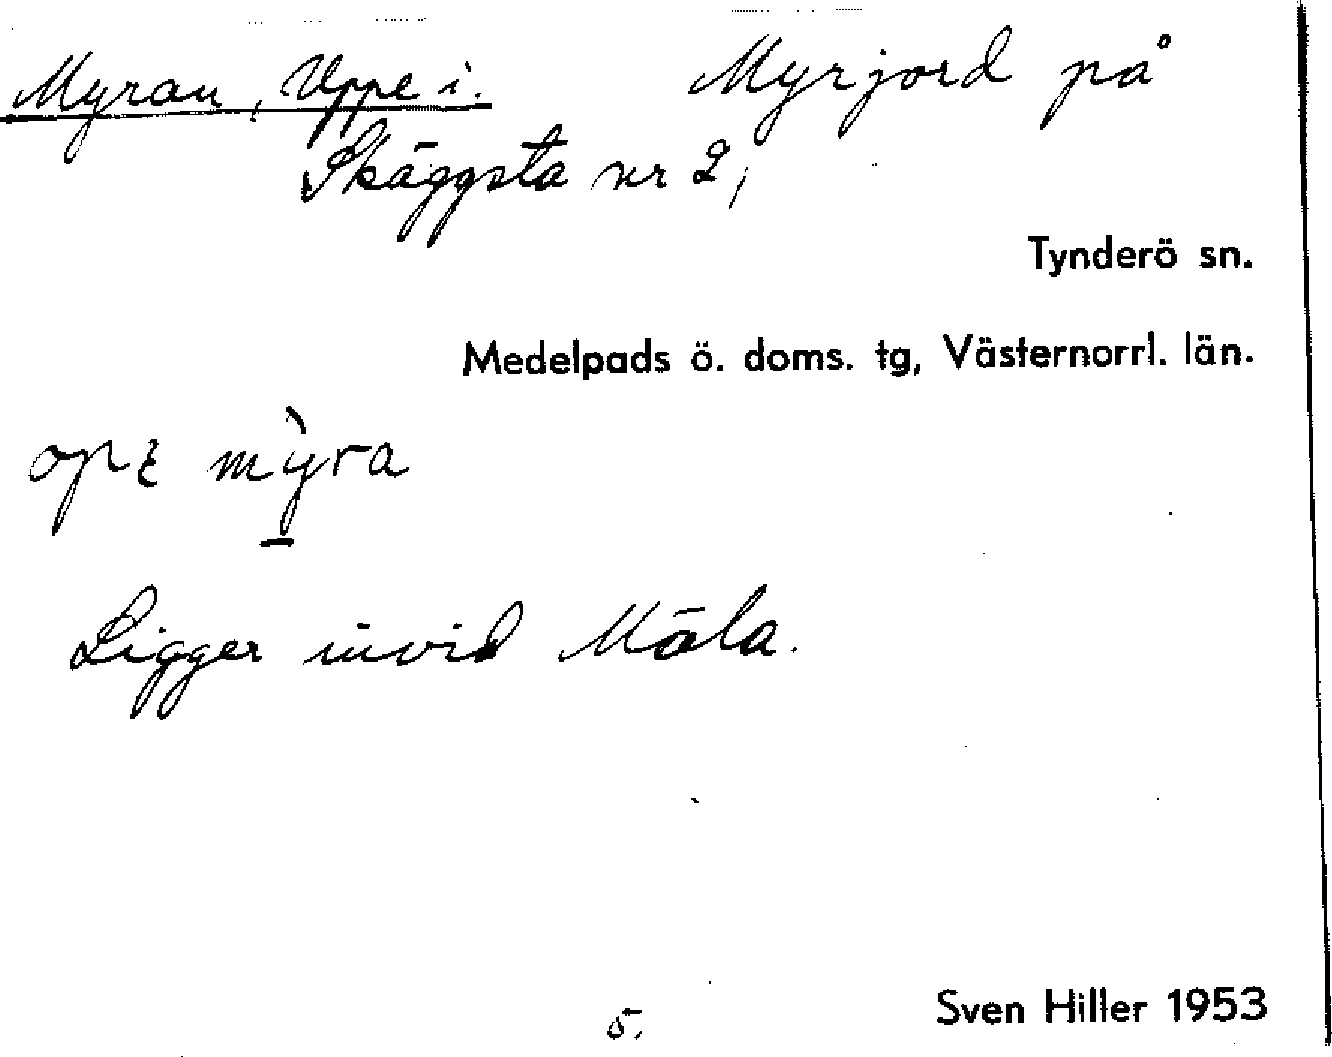 Myran, Uppe i. Myrjord på
Skäggsta nr 2,
Tynderö sn.
Medelpads ö. doms. tg, Västernorrl. län.
opɛ mỳra
Ligger invid Mäla.
Sven Hiller 1953
5.